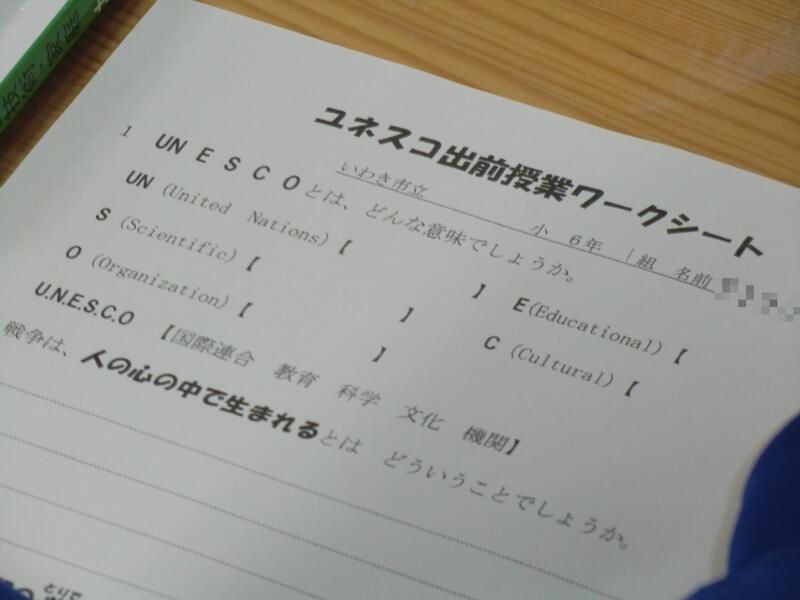 技術・家庭
ユネスコ出前授業ワークシート
いわき市立 小 6年 1組 名前
1 UNESCOとは、どんな意味でしょうか。
UN (United Nations)【 】 E(Educational)【
S (Scientific)【 】 C (Cultural)【
O (Organization)【 】
U.N.E.S.C.O 【国際連合 教育 科学 文化 機関】
戦争は、人の心の中で生まれるとは どういうことでしょうか。
とりで